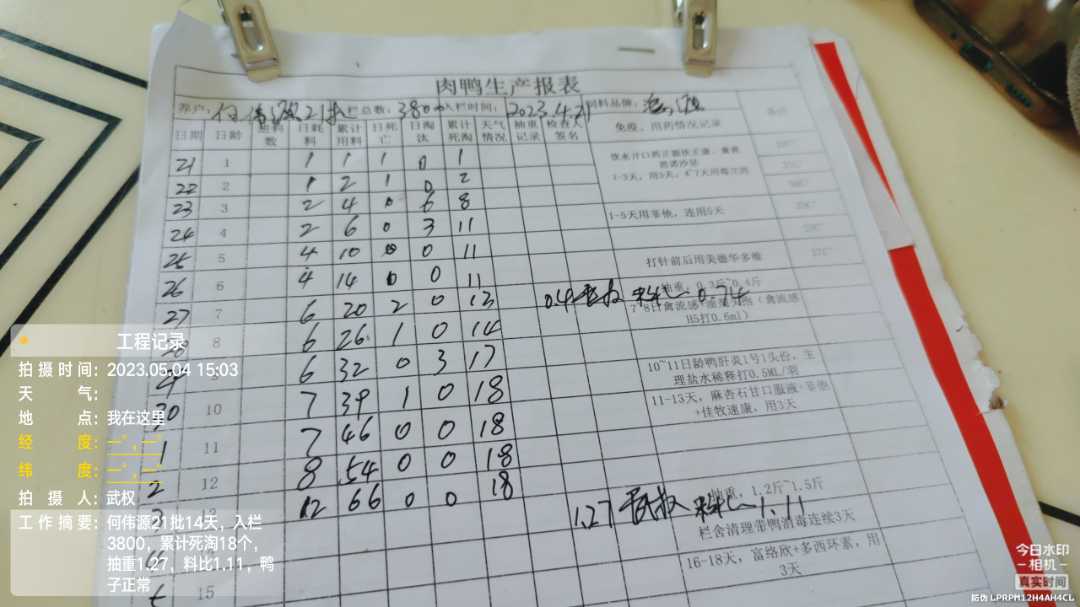 肉鸭生产报表
养户: 何伟源21批 栏总数: 3800 入栏时间: 2023.4.21 饲料品牌:
日期 日龄 进料数 日耗料 累计用料 日死亡 日淘汰 累计死淘 天气情况 抽重记录 检查人签名 免疫、用药情况记录 备注
21 1 1 1 1 0 1
22 2 1 2 1 0 2
23 3 2 4 0 6 8
24 4 2 6 0 3 11
25 5 4 10 0 0 11
26 6 4 14 0 0 11
27 7 6 20 2 0 13
28 8 6 26 1 0 14
6 32 0 3 17
30 10 7 39 1 0 18
1 11 7 46 0 0 18
2 12 8 54 0 0 18
3 12 66 0 0 18
15
1-3天, 用3天,
1-5天用 连用5天
打针前后用美德华多维
抽重, 0.3斤~0.4斤
0.74
7-8日禽流感
H5打0.6ml)
10~11日龄鸭肝炎1号1头份, 生
理盐水稀释打0.5ML/羽
11-13天, 麻杏石甘口服液+
+佳牧速康, 用3天
抽重, 1.2斤~1.5斤
1.27 料比 1.11
栏舍清理带鸭消毒连续3天
16-18天, 富络欣+多西环素, 用
3天
工程记录
拍摄时间: 2023.05.04 15:03
天 气:
地 点: 我在这里
经 度: —°, —°
纬 度: —°, —°
拍 摄 人: 武权
工作摘要: 何伟源21批14天, 入栏
3800, 累计死淘18个,
抽重1.27, 料比1.11, 鸭
子正常
今日水印
-相机-
真实时间
防伪 LPRPM12H4AH4CL